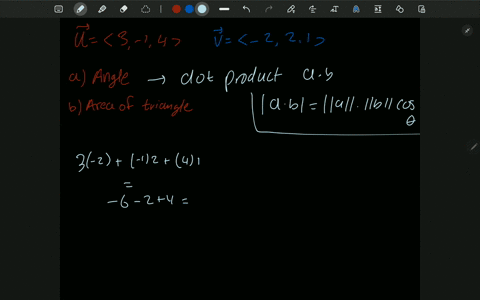 u = < 3, -1, 4 > v = < -2, 2, 1 >
a) Angle → dot product a·b
b) Area of triangle |a·b| = ||a||·||b|| cos θ
3(-2) + (-1)2 + (4)1
=
-6 - 2 + 4 =